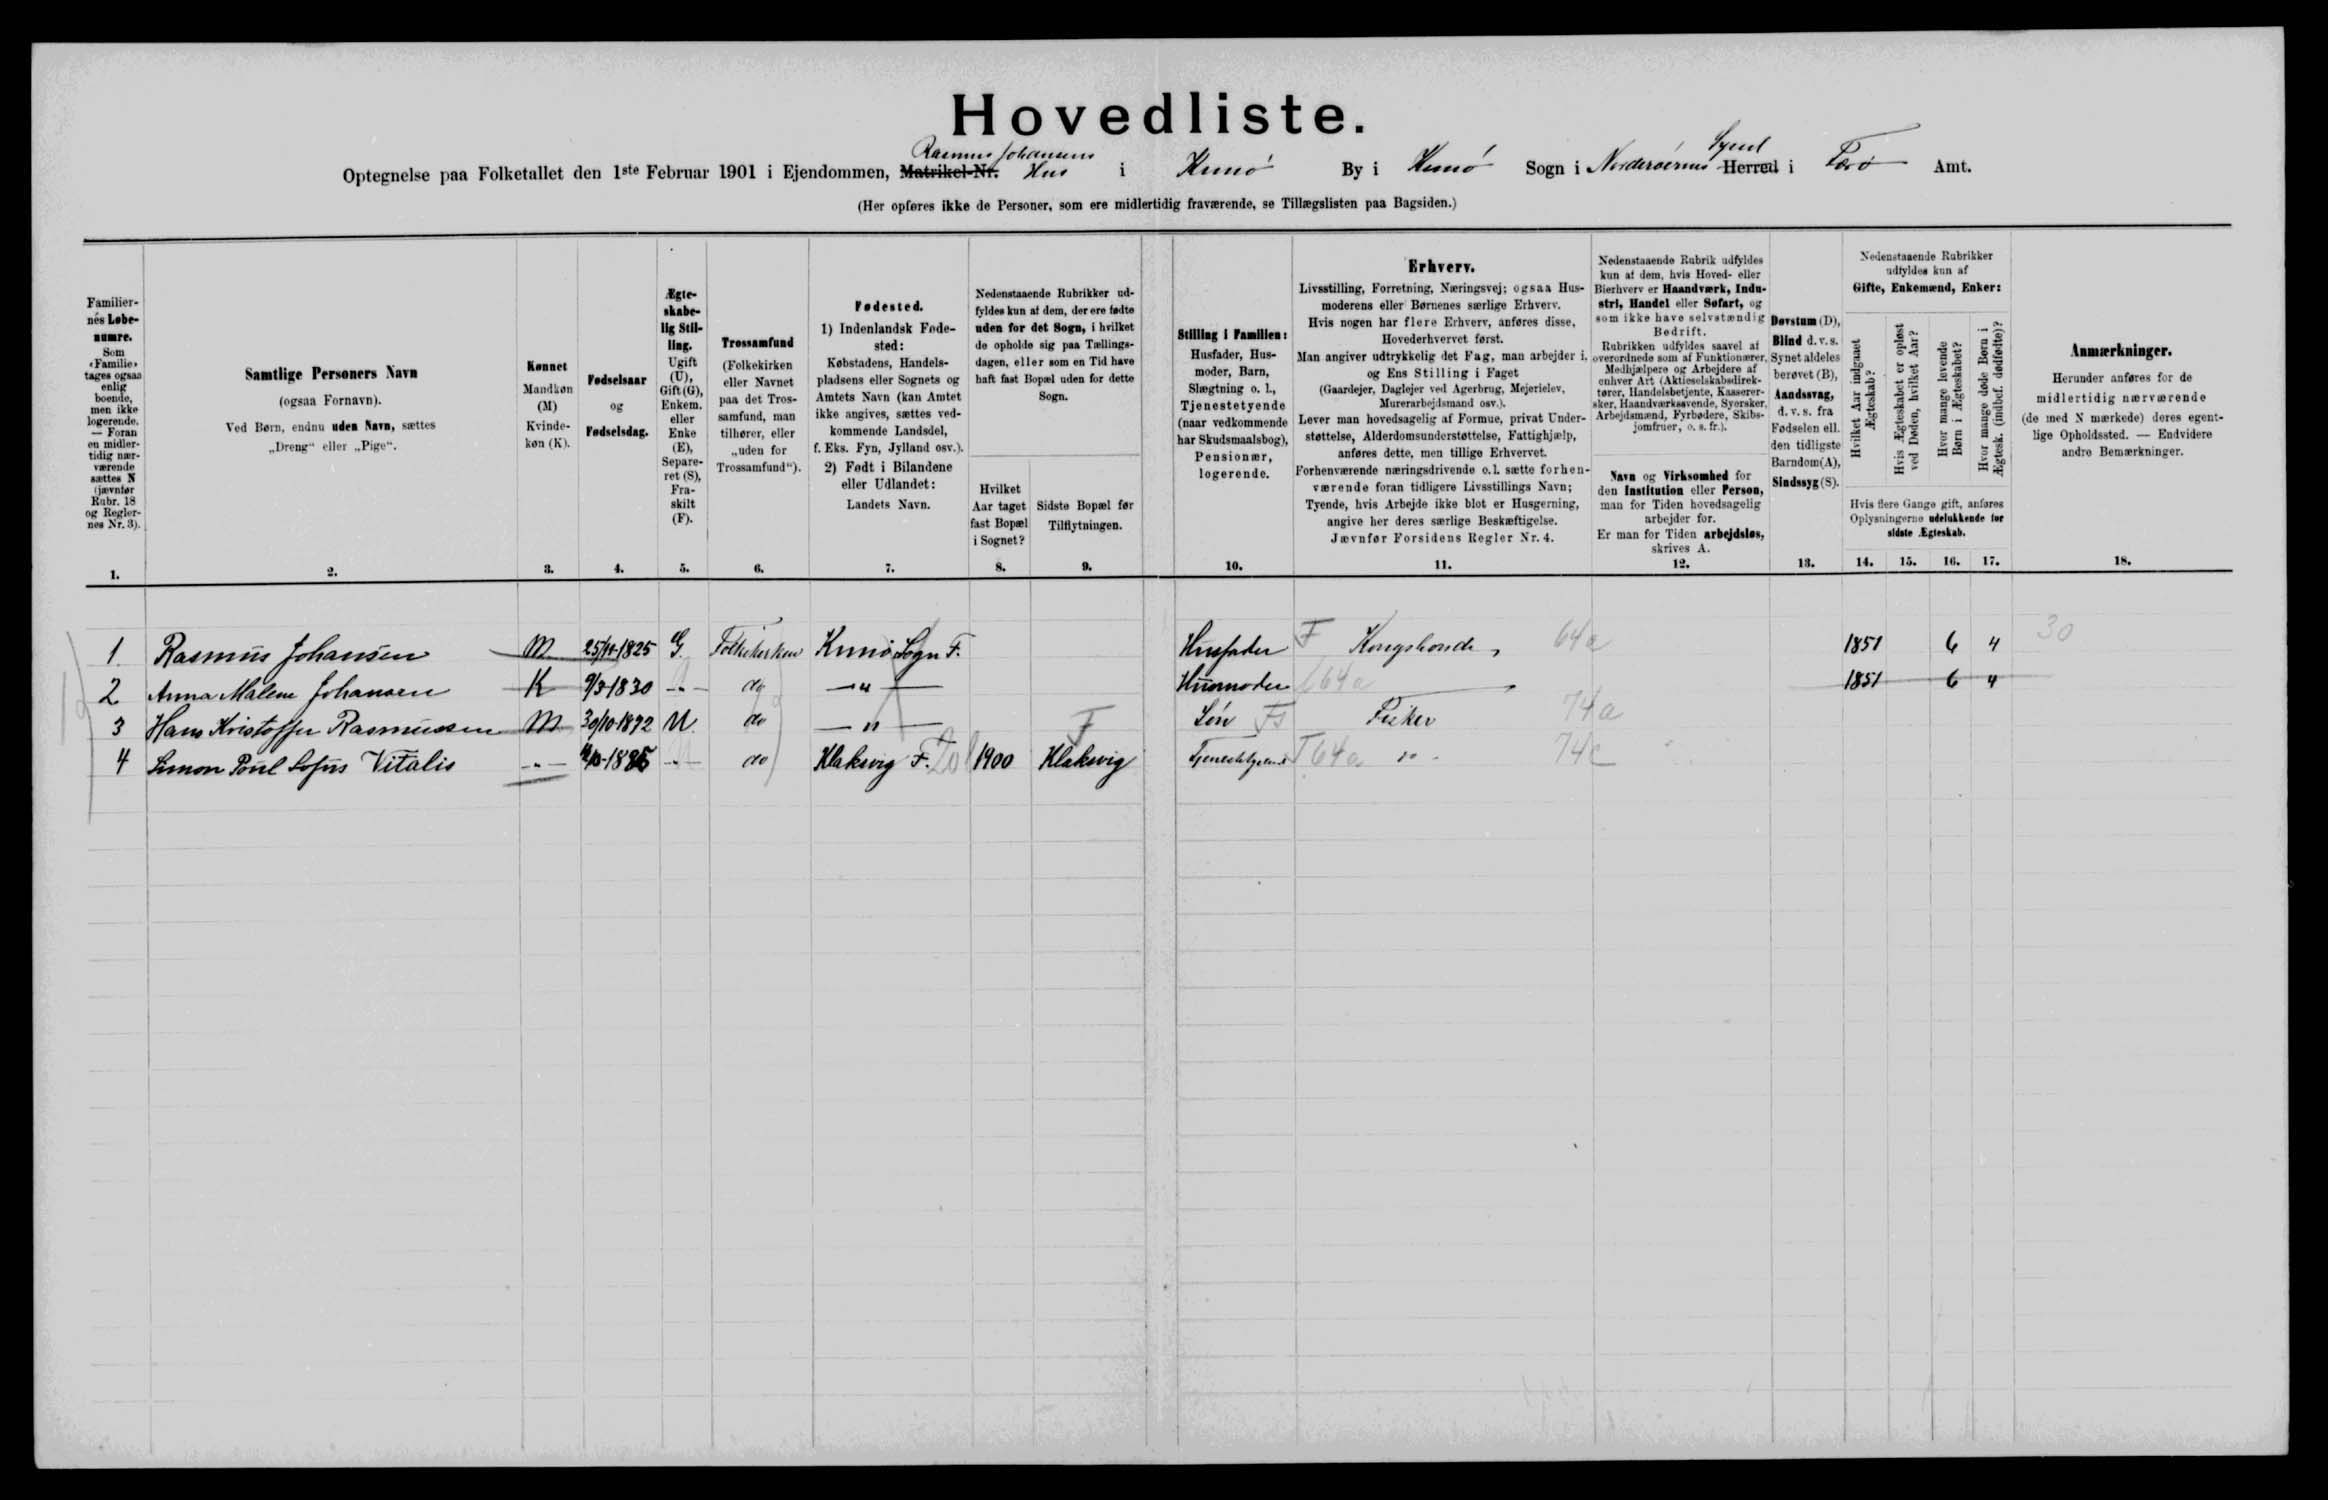 Hovedliste.
Rasmus Johansens Synd
Optegnelse paa Folketallet den 1ste Februar 1901 i Ejendommen, Matrikel-Nr. Hus i Kunö By i Kunö Sogn i Norderöernes Herred i Færö Amt.
(Her opføres ikke de Personer, som ere midlertidig fraværende, se Tillægslisten paa Bagsiden.)
Familier-
nes Løbe-
numre.
Som
«Familie»
tages ogsaa
enlig
boende,
men ikke
logerende.
— Foran
en midler-
tidig nær-
værende
sættes N
(jævnfør
Rubr. 18
og Regler-
nes Nr. 3).
1.
Samtlige Personers Navn
(ogsaa Fornavn).
Ved Børn, endnu uden Navn, sættes
„Dreng" eller „Pige".
2.
Kønnet
Mandkøn
(M)
Kvinde-
køn (K).
3.
Fødselsaar
og
Fødselsdag.
4.
Ægte-
skabe-
lig Stil-
ling.
Ugift
(U),
Gift (G),
Enkem.
eller
Enke
(E),
Separe-
ret (S),
Fra-
skilt
(F).
5.
Trossamfund
(Folkekirken
eller Navnet
paa det Tros-
samfund, man
tilhører, eller
„uden for
Trossamfund").
6.
Fødested.
1) Indenlandsk Føde-
sted:
Købstadens, Handels-
pladsens eller Sognets og
Amtets Navn (kan Amtet
ikke angives, sættes ved-
kommende Landsdel,
f. Eks. Fyn, Jylland osv.).
2) Født i Bilandene
eller Udlandet:
Landets Navn.
7.
Nedenstaaende Rubrikker ud-
fyldes kun af dem, der ere fødte
uden for det Sogn, i hvilket
de opholde sig paa Tællings-
dagen, eller som en Tid have
haft fast Bopæl uden for dette
Sogn.
Hvilket
Aar taget
fast Bopæl
i Sognet?
8.
Sidste Bopæl før
Tilflytningen.
9.
Stilling i Familien:
Husfader, Hus-
moder, Barn,
Slægtning o. l.,
Tjenestetyende
(naar vedkommende
har Skudsmaalsbog),
Pensionær,
logerende.
10.
Erhverv.
Livsstilling, Forretning, Næringsvej; ogsaa Hus-
moderens eller Børnenes særlige Erhverv.
Hvis nogen har flere Erhverv, anføres disse,
Hovederhvervet først.
Man angiver udtrykkelig det Fag, man arbejder i,
og Ens Stilling i Faget
(Gaardejer, Daglejer ved Agerbrug, Mejerielev,
Murerarbejdsmand osv.).
Lever man hovedsagelig af Formue, privat Under-
støttelse, Alderdomsunderstøttelse, Fattighjælp,
anføres dette, men tillige Erhvervet.
Forhenværende næringsdrivende o. l. sætte forhen-
værende foran tidligere Livsstillings Navn;
Tyende, hvis Arbejde ikke blot er Husgerning,
angive her deres særlige Beskæftigelse.
Jævnfør Forsidens Regler Nr. 4.
11.
Nedenstaaende Rubrik udfyldes
kun af dem, hvis Hoved- eller
Bierhverv er Haandværk, Indu-
stri, Handel eller Søfart, og
som ikke have selvstændig
Bedrift.
Rubrikken udfyldes saavel af
overordnede som af Funktionærer,
Medhjælpere og Arbejdere af
enhver Art (Aktieselskabsdirek-
tører, Handelsbetjente, Kasserer-
sker, Haandværkssvende, Syersker,
Arbejdsmænd, Fyrbødere, Skibs-
jomfruer, o. s. fr.).
Navn og Virksomhed for
den Institution eller Person,
man for Tiden hovedsagelig
arbejder for.
Er man for Tiden arbejdsløs,
skrives A.
12.
Døvstum (D),
Blind d. v. s.
Synet aldeles
berøvet (B),
Aandssvag,
d. v. s. fra
Fødselen ell.
den tidligste
Barndom (A),
Sindssyg (S).
13.
Nedenstaaende Rubrikker
udfyldes kun af
Gifte, Enkemænd, Enker:
Hvilket Aar indgaaet
Ægteskab?
Hvis Ægteskabet er opløst
ved Døden, hvilket Aar?
Hvor mange levende
Børn i Ægteskabet?
Hvor mange døde Børn i
Ægtesk. (indbef. dødfødte)?
Hvis flere Gange gift, anføres
Oplysningerne udelukkende for
sidste Ægteskab.
14. 15. 16. 17.
Anmærkninger.
Herunder anføres for de
midlertidig nærværende
(de med N mærkede) deres egent-
lige Opholdssted. — Endvidere
andre Bemærkninger.
18.
1. Rasmus Johansen M 1825 G. Folkekirken Kunö Sogn F. Husfader F Kongsbonde 64a 1851 6 4 30
2 Anna Malene Johansen K 9/3-1830 -"- do -"- Husmoder 64a 1851 6 4
3 Hans Kristoffer Rasmussen M 30/10-1872 U. do -"- F Sön Fs Fisker 74a
4 Simon Poul Sofus Vitalis -"- -"- do Klaksvig F. 20 1900 Klaksvig T 64a do 74c